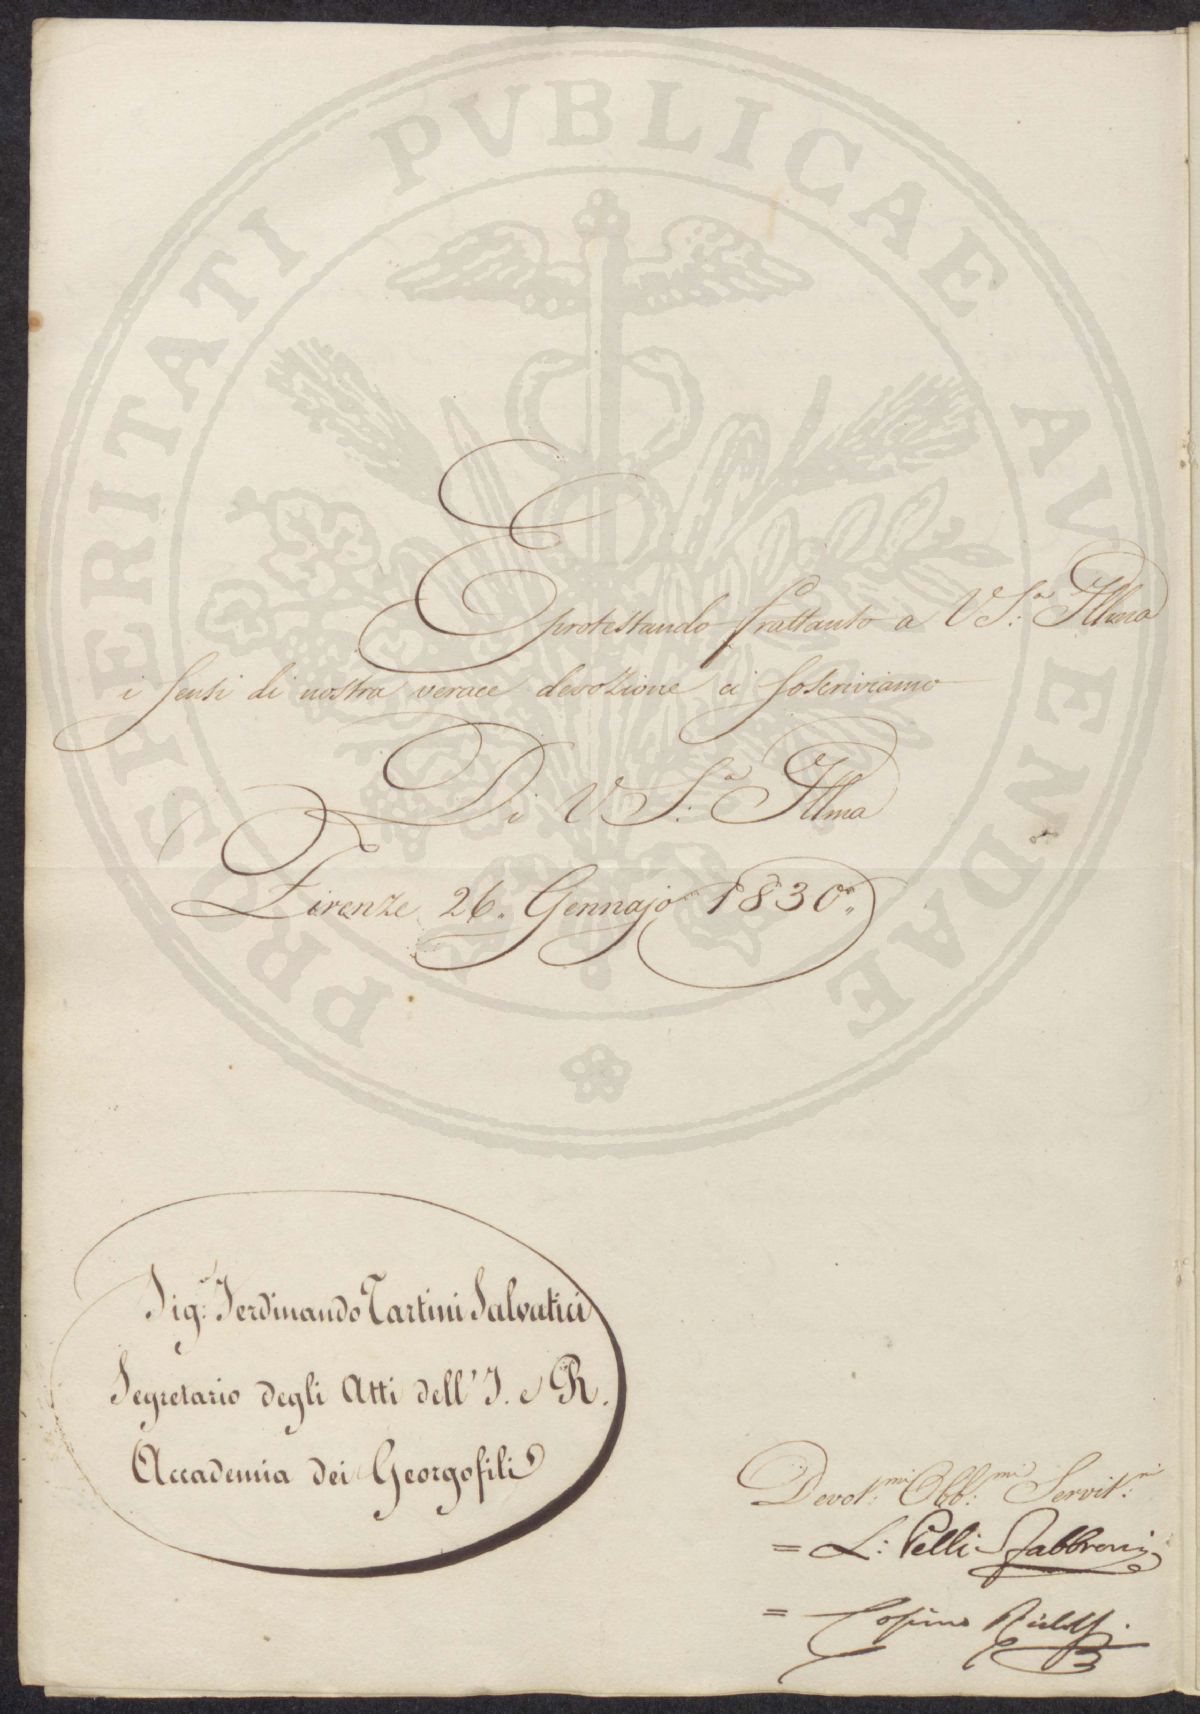 PROSPERITATI PVBLICAE AVGENDAE
E protestando frattanto a V S.ª Illma
i sensi di nostra verace devozione ci soscriviamo
Di V S.ª Illma
Firenze 26. Gennajo 1830.
Sig.r Ferdinando Tartini Salvatici
Segretario degli Atti dell' I. e R.
Accademia dei Georgofili
Devot.mi Obb.mi Servit.ri
= L: Pelli Fabbroni
= Cosimo Ridolfi.